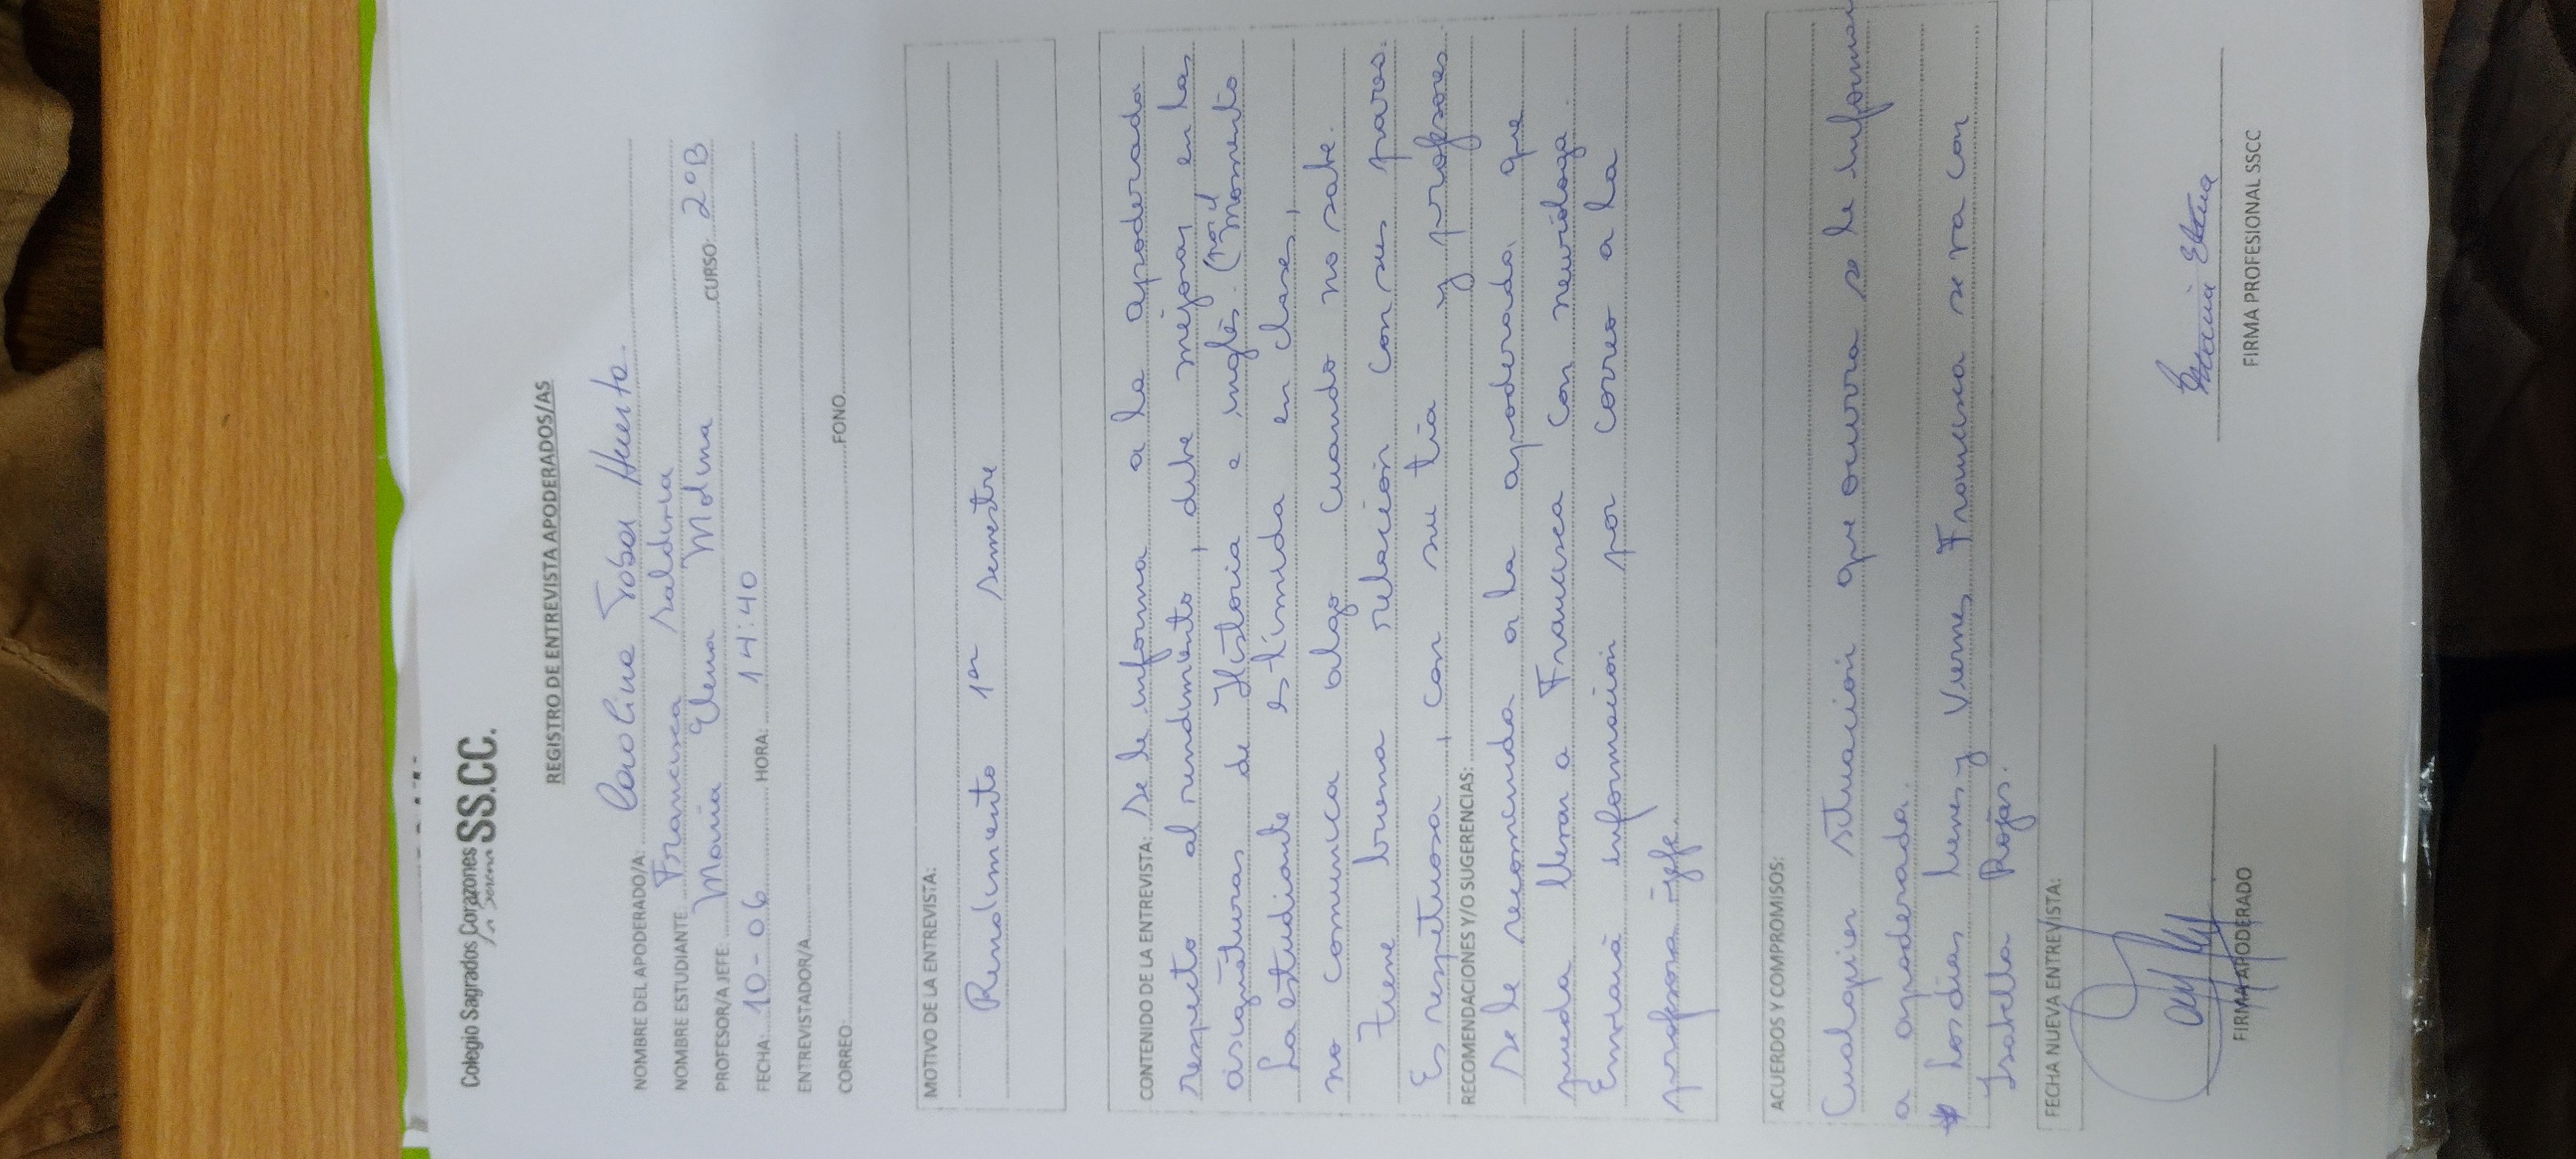 Colegio Sagrados Corazones
La Serena SS.CC.
REGISTRO DE ENTREVISTA APODERADOS/AS
NOMBRE DEL APODERADO/A: Carolina Tobar Huerta.
NOMBRE ESTUDIANTE: Francisca Saldivia
PROFESOR/A JEFE: María Elena Molina CURSO: 2°B
FECHA: 10-06 HORA: 14:40
ENTREVISTADOR/A
CORREO: FONO
MOTIVO DE LA ENTREVISTA:
Rendimiento 1er semestre
CONTENIDO DE LA ENTREVISTA: Se le informa a la apoderada
respecto al rendimiento, debe mejorar en las
asignaturas de Historia e inglés. (por el momento
La estudiante es tímida en clases,
no comunica algo cuando no sabe.
Tiene buena relación con sus pares.
Es respetuosa, con su tía y profesores
RECOMENDACIONES Y/O SUGERENCIAS:
Se le recomienda a la apoderada que
pueda llevar a Francisca con neuróloga.
Enviará información por correo a la
profesora jefe.
ACUERDOS Y COMPROMISOS:
Cualquier situación que ocurra se le informa
a apoderada.
* Los días lunes y viernes Francisca se va con
Isabella Rojas.
FECHA NUEVA ENTREVISTA:
FIRMA APODERADO FIRMA PROFESIONAL SSCC